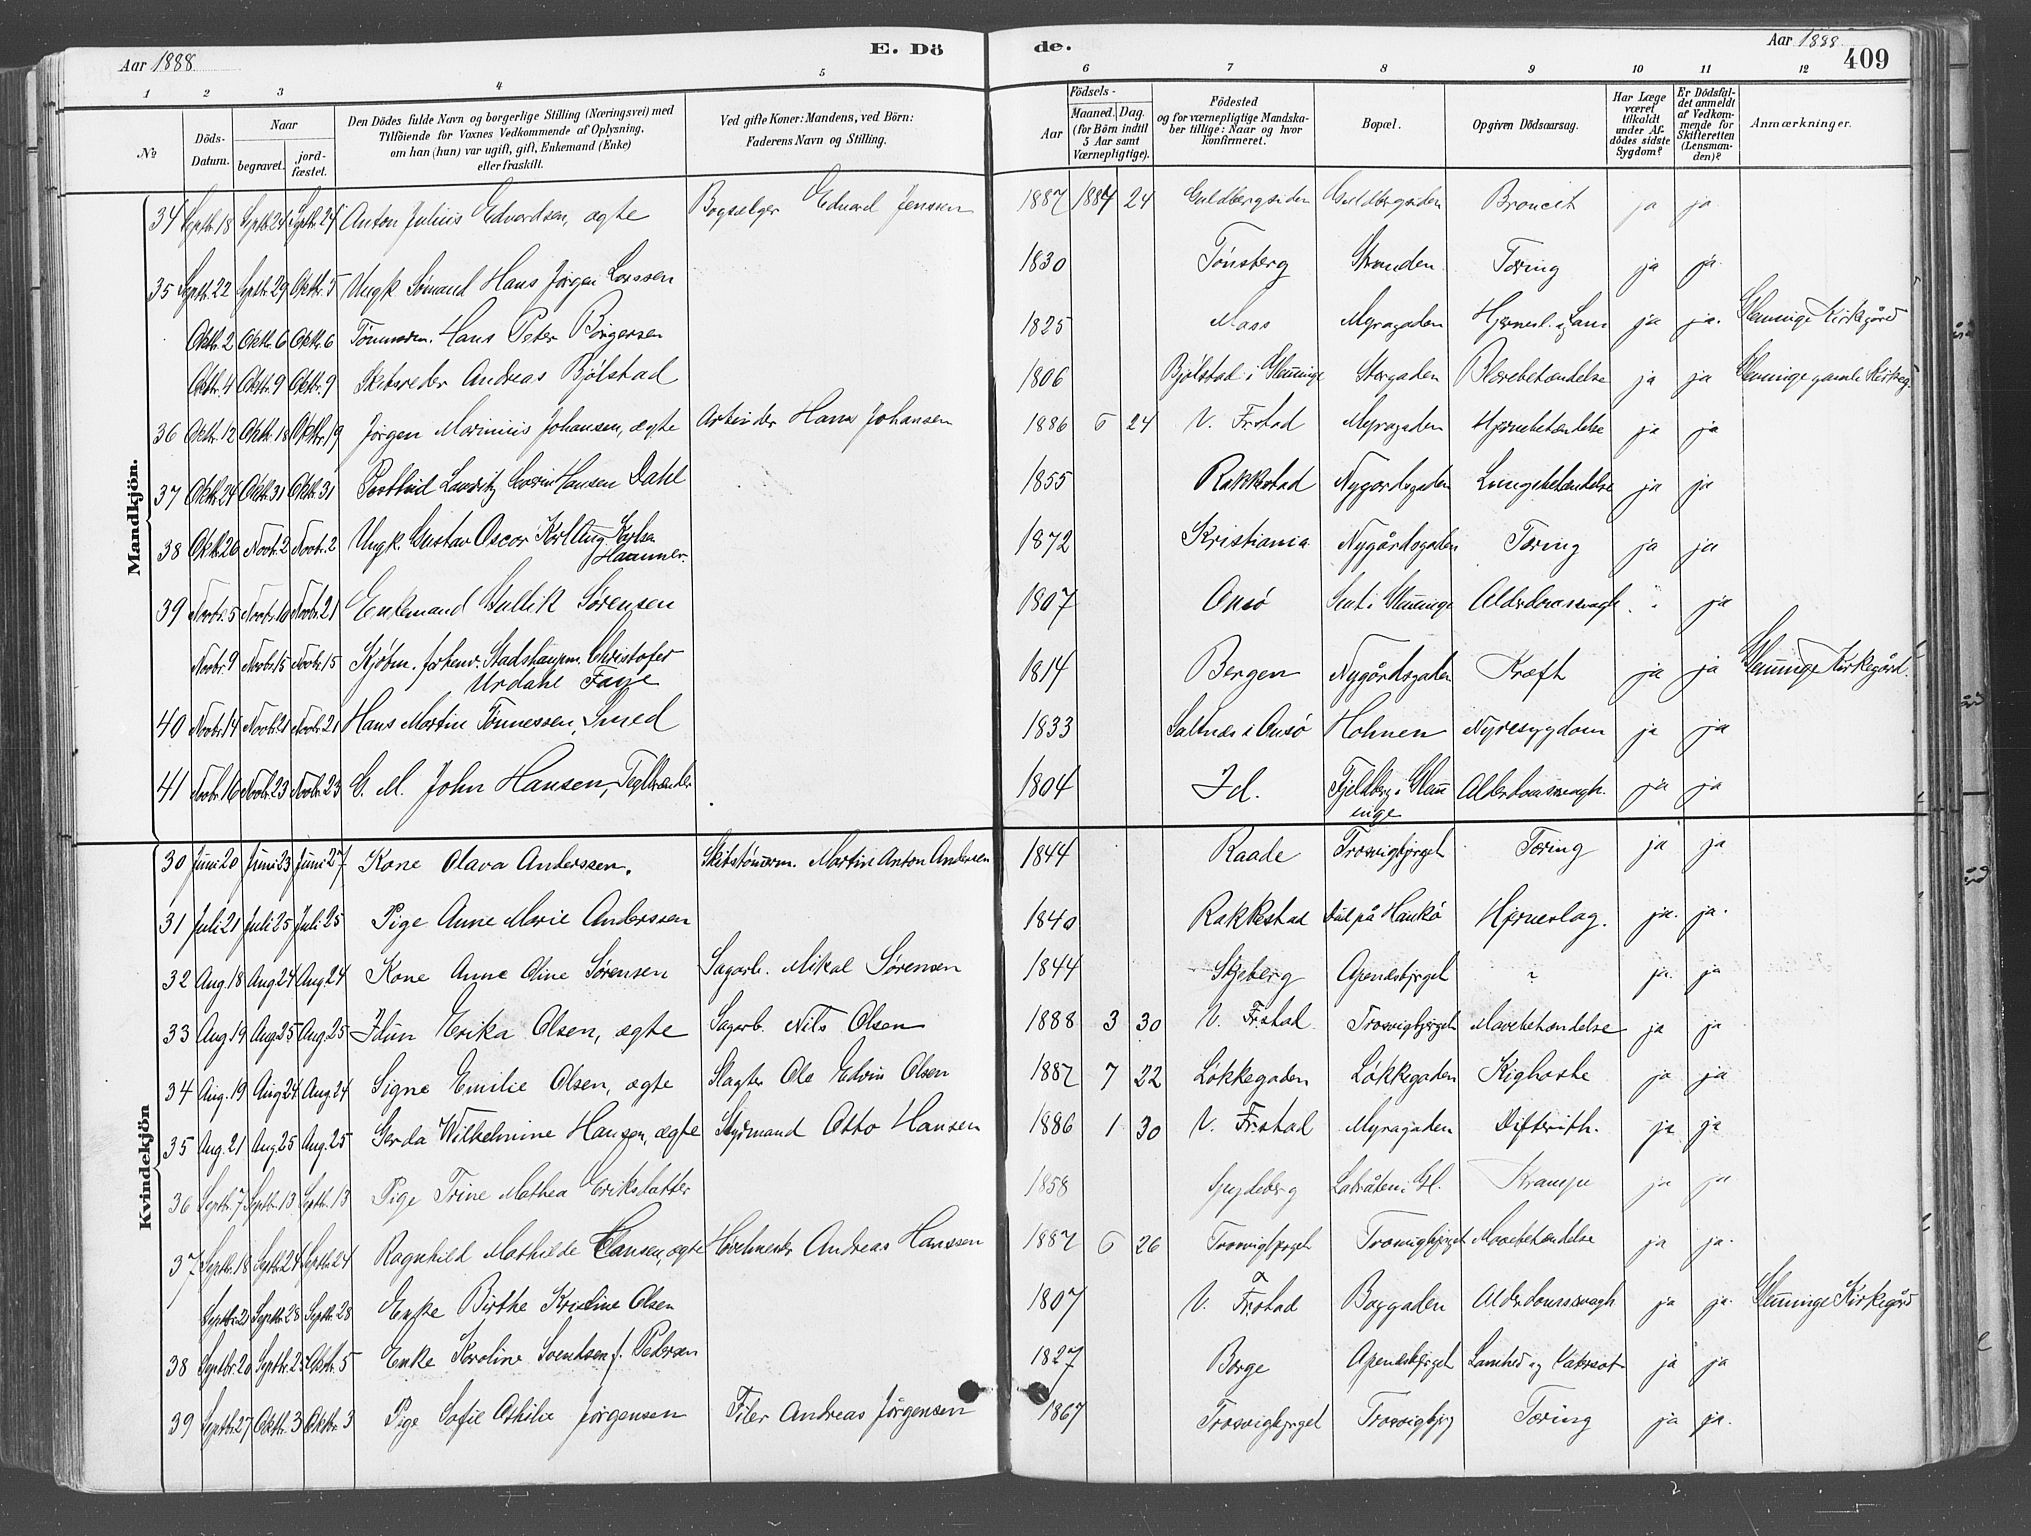 Aar 1888. E. Dö de. Aar 1888. 409
1 2 3 4 5 6 7 8 9 10 11 12
No Döds-Datum. Naar begravet. jord-fæstet. Den Dödes fulde Navn og borgerlige Stilling (Næringsvei) med Tilföiende for Voxnes Vedkommende af Oplysning, om han (hun) var ugift, gift, Enkemand (Enke) eller fraskilt. Ved gifte Koner: Mandens, ved Börn: Faderens Navn og Stilling. Födsels- Aar Maaned. Dag. (for Börn indtil 5 Aar samt Værnepligtige). Födested og for værnepligtige Mandska-ber tillige: Naar og hvor konfirmeret. Bopæl. Opgiven Dödsaarsag. Har Læge været tilkaldt under Af-dödes sidste Sygdom? Er Dödsfal-det anmeldt af Vedkom-mende for Skifteretten (Lensman-den)? Anmærkninger.
Mandkjön.
34 Septbr. 18 Septbr. 24 Septbr. 24 Anton Julius Edvardsen, ægte Bogsælger Edvard Jensen 1887 24 Guldbergsiden Guldbergsiden Broncit ja ja
35 Septbr. 22 Septbr. 29 Oktbr. 5 Ungk. Sømand Hans Jørgen Larssen 1830 Tønsberg Stranden Tæring ja ja
Oktbr. 2 Oktbr. 6 Oktbr. 6 Tømmerm. Hans Peter Börgersen 1825 Moss Myragaden ja ja. Glemminge Kirkegård
Oktbr. 4 Oktbr. 9 Oktbr. 9 Skibsreder Andreas Bjølstad 1806 Bjølstad i Glemminge Storgaden Blærebetændelse ja ja Glemminge gamle Kirkeg.
36 Oktbr. 12 Oktbr. 18 Oktbr. 19 Jørgen Marinius Johansen, ægte Arbeider Hans Johansen 1886 6 24 V. Frstad Myragaden Hjernebetændelse ja ja
37 Oktbr. 24 Oktbr. 31 Oktbr. 31 Postbud Lauritz Hansen Dahl 1855 Rakkestad Nygårdsgaden Lungebetændelse ja ja
38 Oktbr. 26 Novbr. 2 Novbr. 2 Ungk. Gustav Oscar Karl Aug. Karlsen
Hammer. 1872 Kristiania Nygårdsgaden Tæring ja ja
39 Novbr. 5 Novbr. 10 Novbr. 21 Enkemand Gullik Sørensen 1807 Onsø i Glemminge Alderdomssvagh. " ja
Novbr. 9 Novbr. 15 Novbr. 15 Kjøbm. forhenv. Stadshauptm. Christofer
Urdahl Faye 1814 Bergen Nygårdsgaden Kræft ja ja Glemminge Kirkegård.
40 Novbr. 14 Novbr. 21 Novbr. 21 Hans Martin Tønnessen, Smed 1833 Saltnæs i Onsø Holmen Nyresygdom ja ja
41 Novbr. 16 Novbr. 23 Novbr. 23 G. M. John Hansen, Teglbrænder 1804 Id. Fjeldberg i Glem
inge Alderdomssvagh. ja ja
Kvindekjön
30 Juni 20 Juni 23 Juni 27 Kone Olava Anderssen. Skibstømerm. Martin Anton Andersen 1844 Raade Trosvigbjrget Tæring ja ja
31 Juli 21 Juli 25 Juli 25 Pige Anne Marie Anderssen 1840 Rakkestad Død på Hankø Hjerneslag. ja. ja.
32 Aug. 18 Aug. 24 Aug. 24 Kone Anne Oline Sørensen Sagarb. Mikal Sørensen 1844 Skjeberg Apenæsbjrget ? ja. ja
33 Aug. 19 Aug. 25 Aug. 25 Idun Erika Olsen, ægte Sagarb. Nils Olsen 1888 3 30 V. Frstad Trosvigbjrget Mavebetændelse ja ja
34 Aug. 19 Aug. 24 Aug. 24 Signe Emilie Olsen, ægte Slagter Ole Edvin Olsen 1887 7 22 Løkkegaden Løkkegaden Kighoste ja ja
35 Aug. 21 Aug. 25 Aug. 25 Gerda Wilhelmine Hansen, ægte Styrmand Otto Hansen 1886 1 30 V. Frstad Myragaden Difterith. ja ja
36 Septbr. 7 Septbr. 13 Septbr. 13 Pige Trine Mathea Eriksdatter 1858 Spydeberg Labråten i Gl. Krampe ja ja
37 Septbr. 18 Septbr. 24 Septbr. 24 Ragnhild Mathilde Hansen, ægte Høvlmester Andreas Hanssen 1887 6 26 Trosvigbjrget Trosvigbjrget Mavebetændelse ja ja.
Septbr. 21 Septbr. 28 Septbr. 28 Enke Birthe Kristine Olsen 1807 V. Frstad Baggaden Alderdomssvagh ja ja. Glemminge Kirkegård
38 Septbr. 20 Septbr. 25 Oktbr. 5 Enke Karoline Svendsen f. Pedersen 1827 Borge Apenæsbjrget Lamhed og Vatersot ja ja
39 Septbr. 27 Oktbr. 3 Oktbr. 3 Pige Sofie Othilie Jørgensen Filer Andreas Jørgensen 1867 Trosvigbjrget Trosvigbjrg Tæring ja ja.